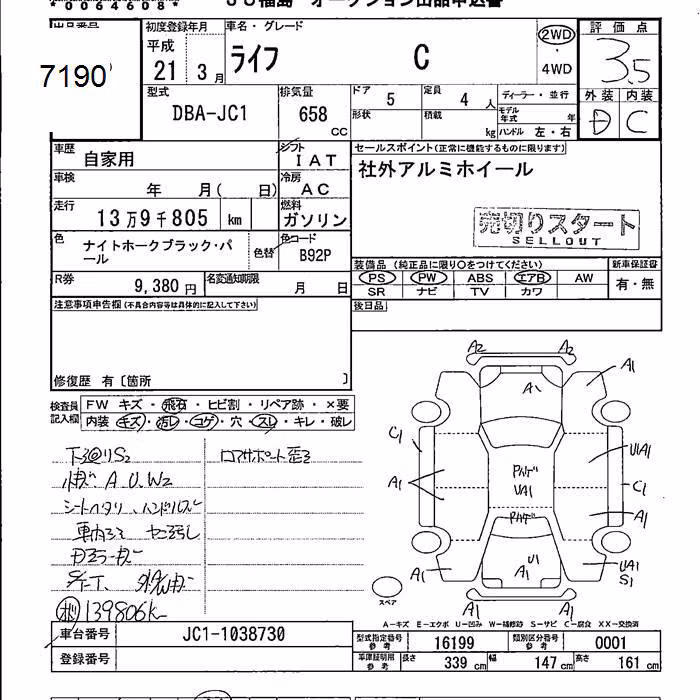 *0064608*
JU福島 オークション出品申込書
出品番号
7190
初度登録年月
平成
21 3月
車名・グレード
ライフ C
2WD
・
4WD
評価点
3.5
外装 内装
D C
型式
DBA-JC1
排気量
658
cc
ドア
5
定員
4 人
形状
積載
kg
ディーラー・並行
モデル年式 年
ハンドル 左・右
車歴
自家用
シフト
IAT
車検
年 月( 日)
冷房
AC
走行
13万9千805 km
燃料
ガソリン
色
ナイトホークブラック・パール
色替
色コード
B92P
R券
9,380円
名変通知期限
月 日
セールスポイント(正常に機能するものに限ります)
社外アルミホイール
売切りスタート
SELLOUT
装備品 (純正品に限り○をつけてください)
PS PW ABS エアB AW
SR ナビ TV カワ
新車保証書
有・無
後日品
注意事項申告欄(不具合内容等は具体的に記入して下さい)
修復歴 有〔箇所 〕
検査員記入欄
FW キズ・飛石・ヒビ割・リペア跡・×要
内装 キズ・汚レ・コゲ・穴・スレ・キレ・破レ
シートヘタリ、ハンドルスレ
139806k
コアサポート歪ミ
A2 A2
A1 A1
C1 UA1
A1 C1
A1
UA1
U1
A1 A1 A1
UA1
S1
スペア
A-キズ E-エクボ U-凹み W-補修跡 S-サビ C-腐食 XX-交換済
車台番号 JC1-1038730
登録番号
型式指定番号 参考 16199 類別区分番号 参考 0001
車庫証明用 参考 長さ 339 cm 幅 147 cm 高さ 161 cm